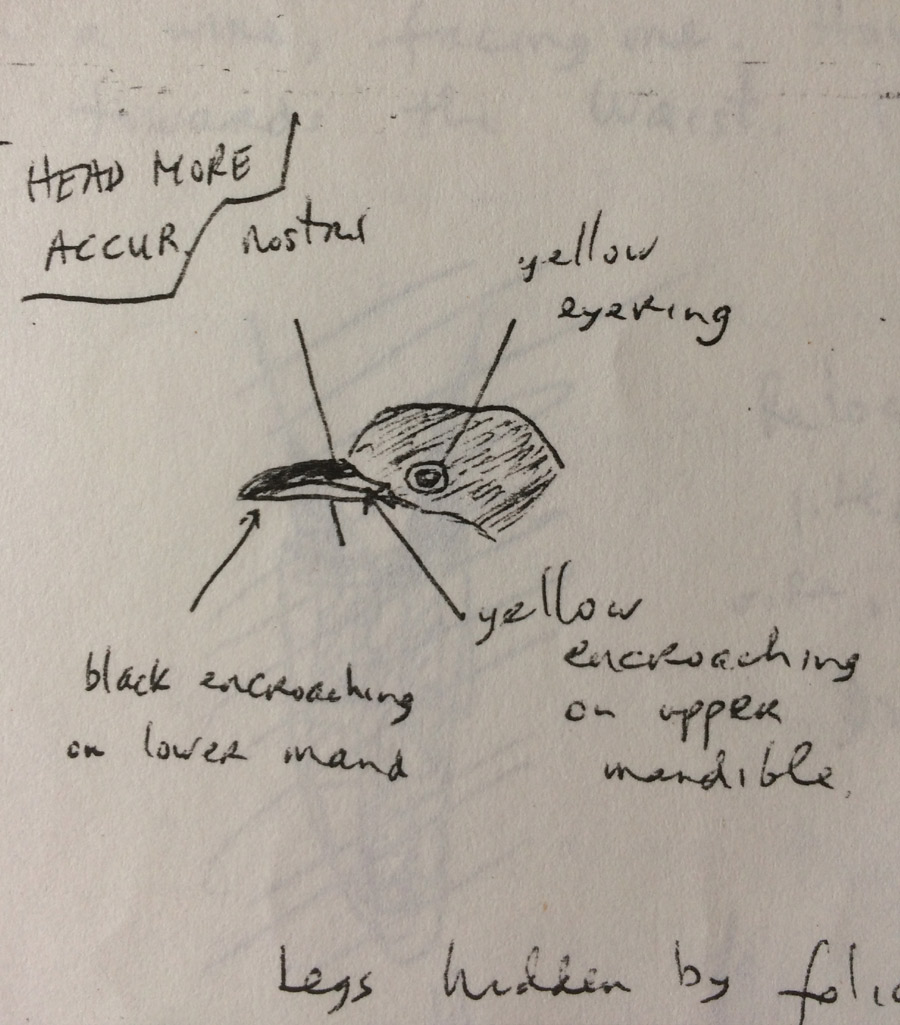 HEAD MORE
ACCUR.
nostril
yellow
eyering
yellow
encroaching
on upper
mandible.
black encroaching
on lower mand
Legs hidden by folia